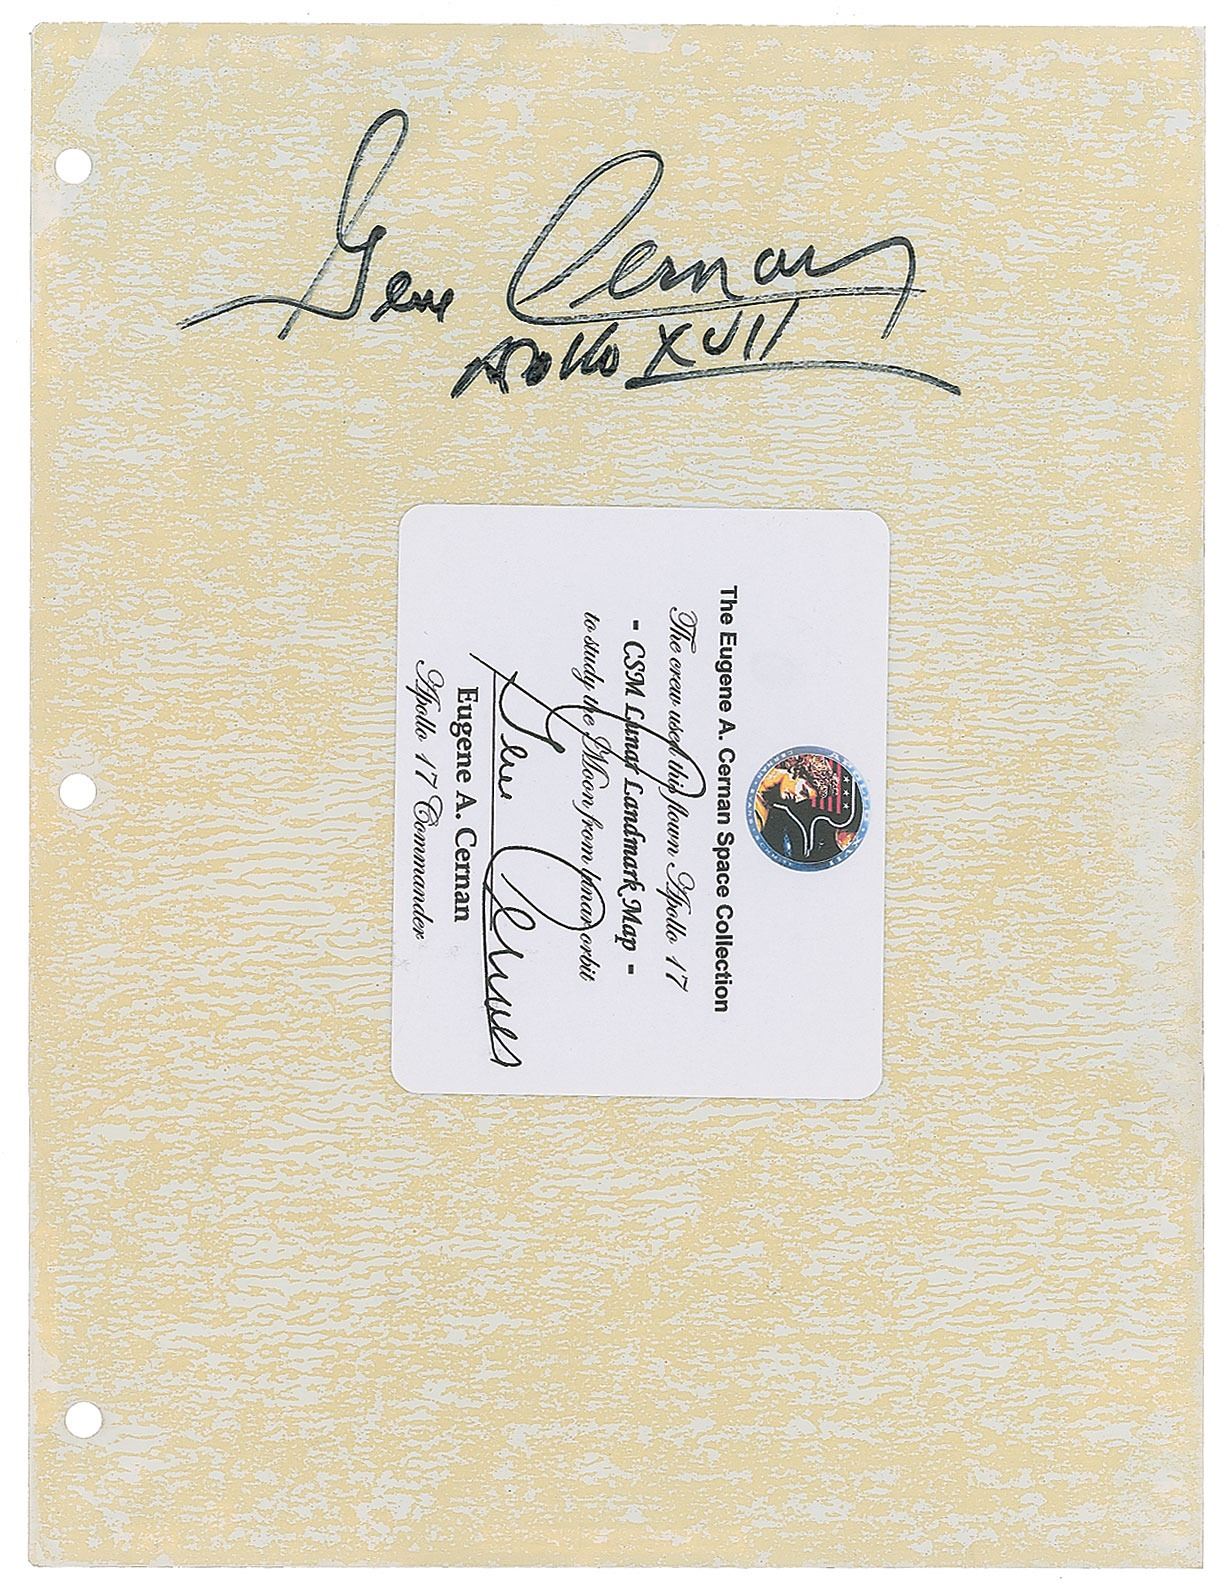 Gene Cernan
Apollo XVII
The Eugene A. Cernan Space Collection
The crew used this flown Apollo 17
- CSM Lunar Landmark Map -
to study the Moon from lunar orbit
Gene Cernan
Eugene A. Cernan
Apollo 17 Commander